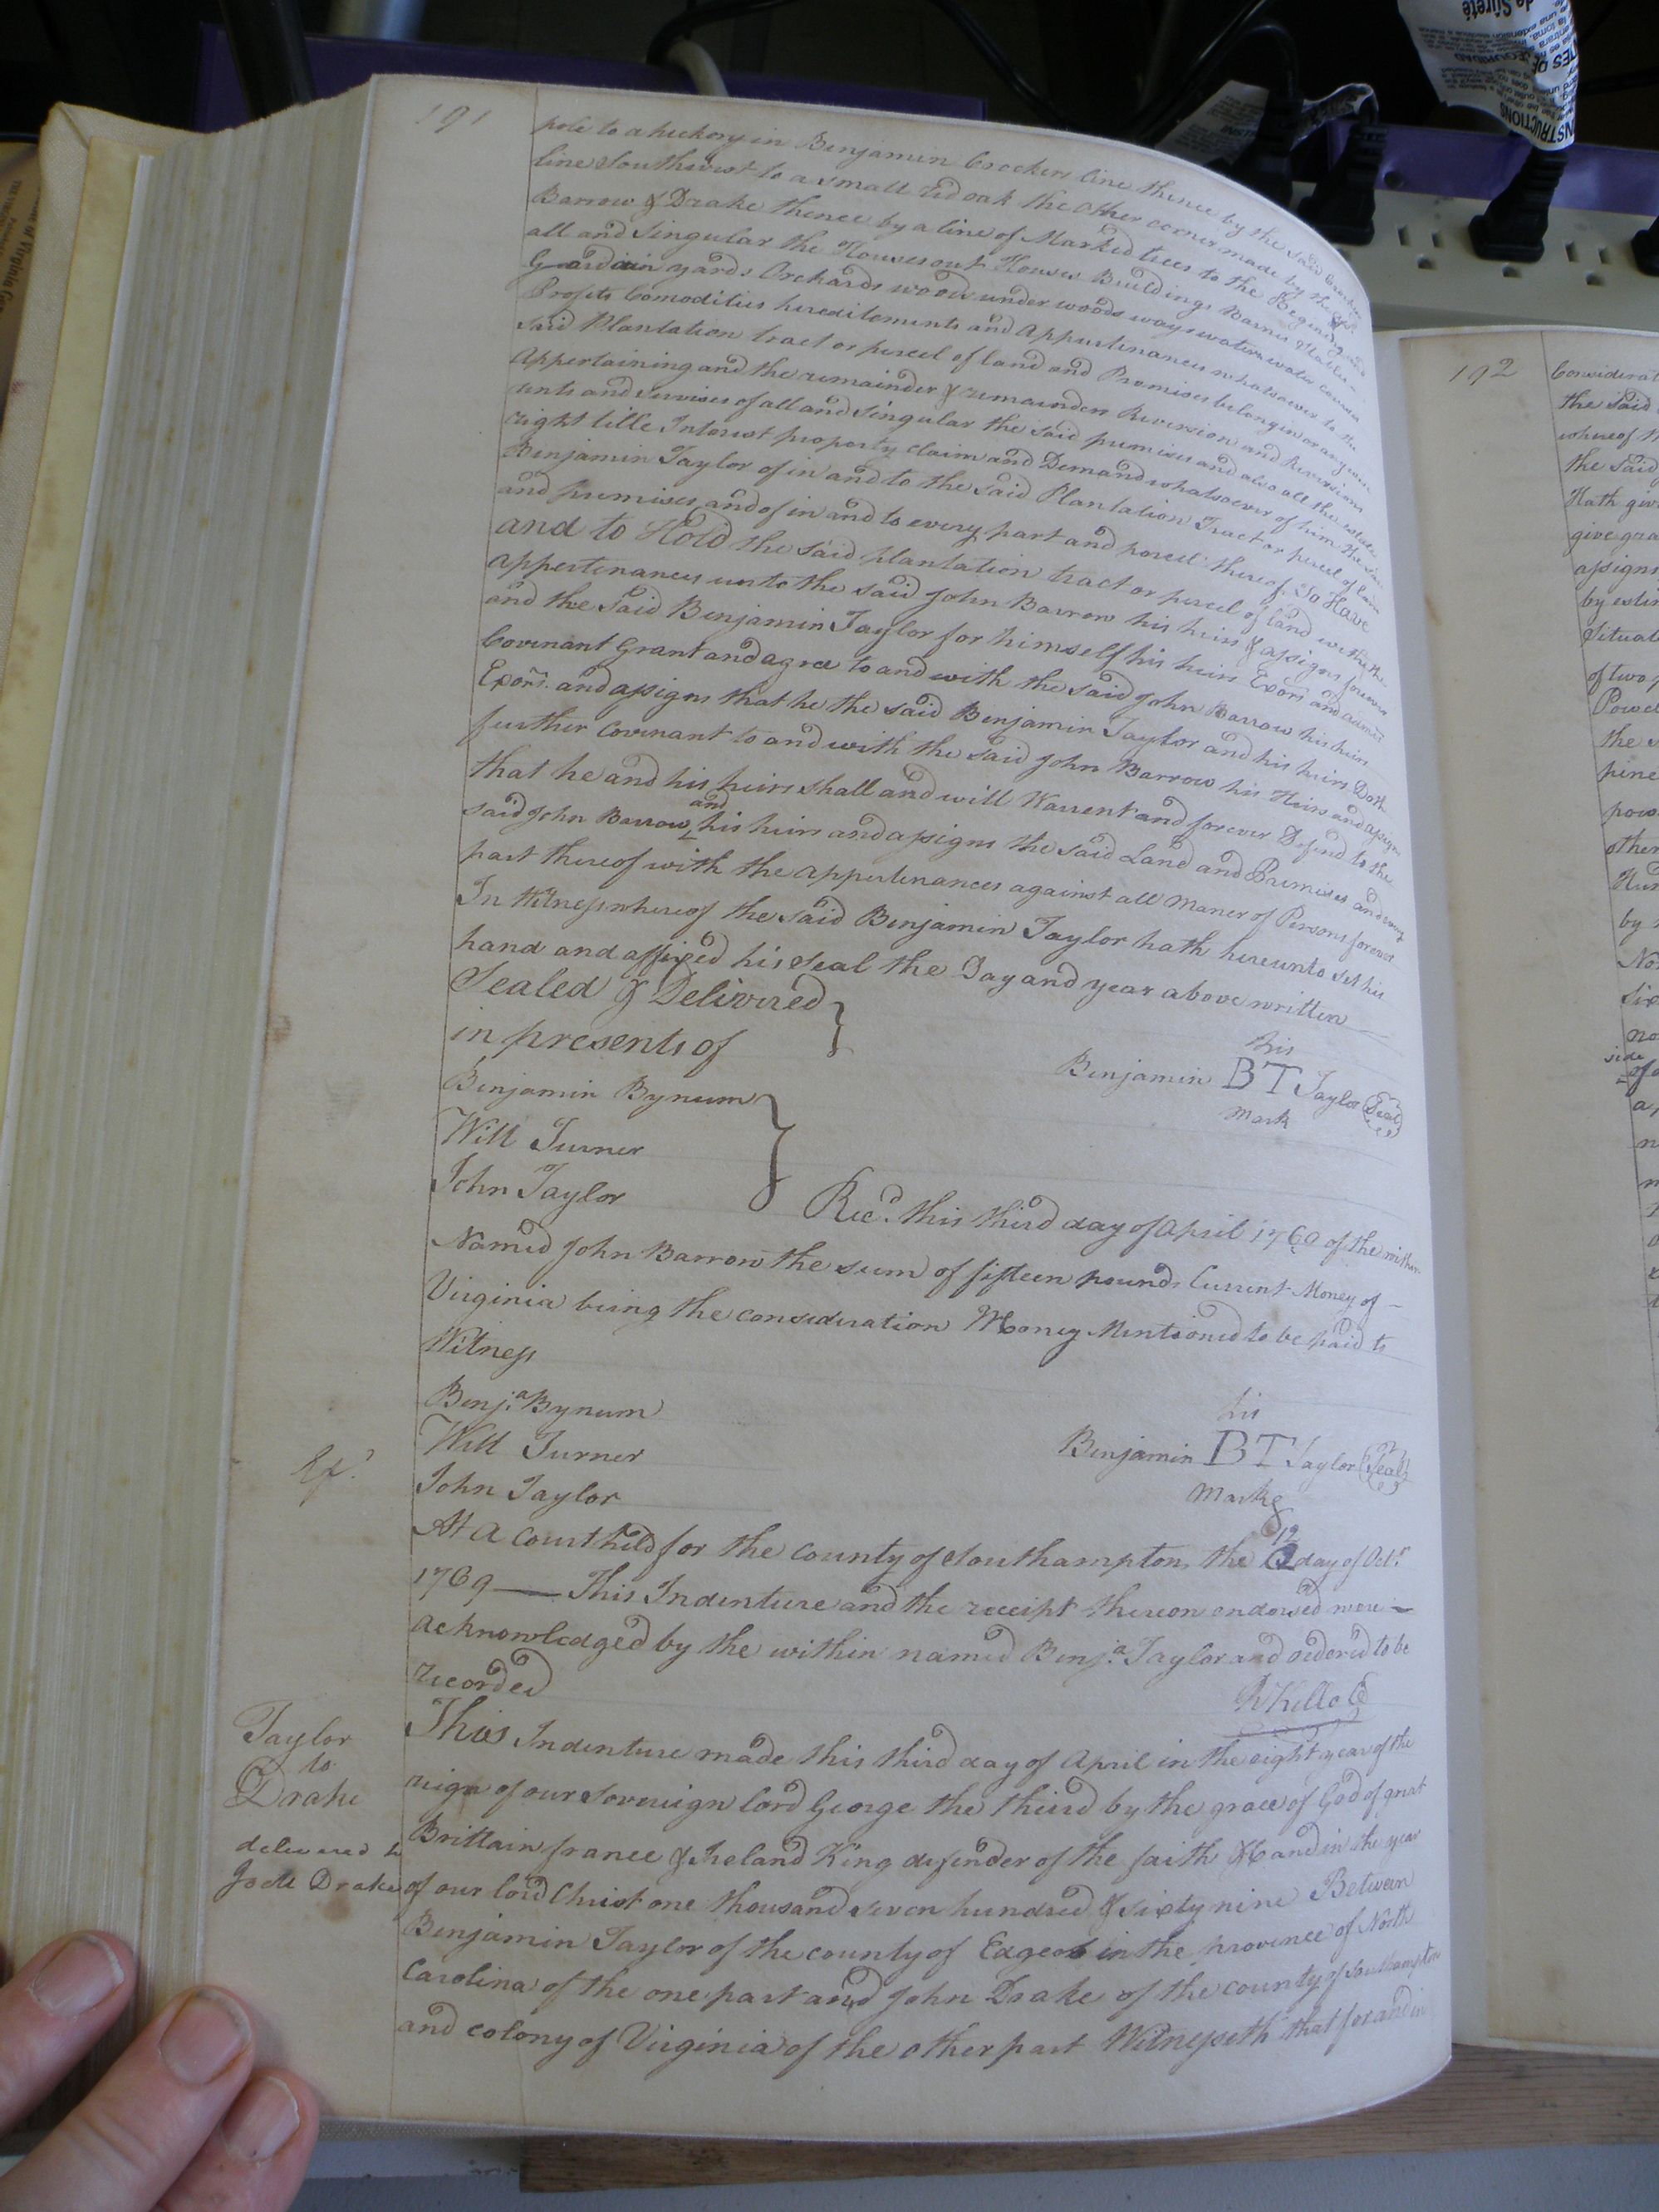 191
pole to a hickory in Benjamin Crockers line thence by the said Crockers
line Southwest to a small red oak the other corner made by the
Barrow & Drake thence by a line of Marked trees to the Begening and
all and Singular the Houses out Houses Buildings Barns Stables
Gardain yards Orchards woods under woods ways waters water courses
Profits Comodities hereditements and Appurtenances whatsoever to the
said Plantation tract or percel of land and Premises belongin or anywise
Appertaining and the remainder & remainders Reversion and Reversions
rents and servises of all and Singular the said premises and also all the estate
right title Interest property claim and Demand whatsoever of him the said
Benjamin Taylor of in and to the said Plantation Tract or percel of land
and premises and of in and to every part and percel thereof. To Have
and to Hold the said plantation tract or percel of land with the
appertenances unto the said John Barrow his heirs & assigns forever
and the said Benjamin Taylor for himself his heirs Exors and admrs
Covenant Grant and agree to and with the said John Barrow his heirs
Exors. and assigns that he the said Benjamin Taylor and his heirs Doth
further covenant to and with the said John Barrow his Heirs and assigns
that he and his heirs shall and will Warrent and forever Defend to the
said John Barrow and his heirs and assigns the said Land and Premises and every
part thereof with the appertenances against all maner of Persons forever
In Witness whereof the said Benjamin Taylor hath hereunto set his
hand and affixed his seal the Day and year above written
Sealed & Delivered
in presents of
his
Benjamin BT Taylor (Seal)
mark
Benjamin Bynum
Will Turner
John Taylor
Recd. this third day of April 1769 of the within
Named John Barrow the sum of fifteen pounds Current Money of
Virginia being the consideration Money Mentioned to be paid to
Witness
Benja. Bynum
his
Will Turner
Benjamin BT Taylor (Seal)
John Taylor
Marke
At a Court held for the county of Southampton the 12 day of Octr
1769 — This Indenture and the receipt thereon endorsed were
acknowledged by the within named Benja. Taylor and ordered to be
recorded
Taylor
to
Drake
This Indenture made this third day of April in the eight year of the
reign of our sovereign lord George the third by the grace of God of great
Brittain france & Ireland King defender of the faith &c and in the year
delivered to
Jode Drake
of our lord Christ one thousand seven hundred & sixty nine Between
Benjamin Taylor of the county of Edgeob in the province of North
Carolina of the one part and John Drake of the county of Southampton
and colony of Virginia of the other part Witnesseth that for and in
192
Considerat
the said
whereof
the said
Hath giv
give gra
assigns
by estim
Situat
of two
Powe
the
pine
pow
other
Hun
by
No
six
no
side
of